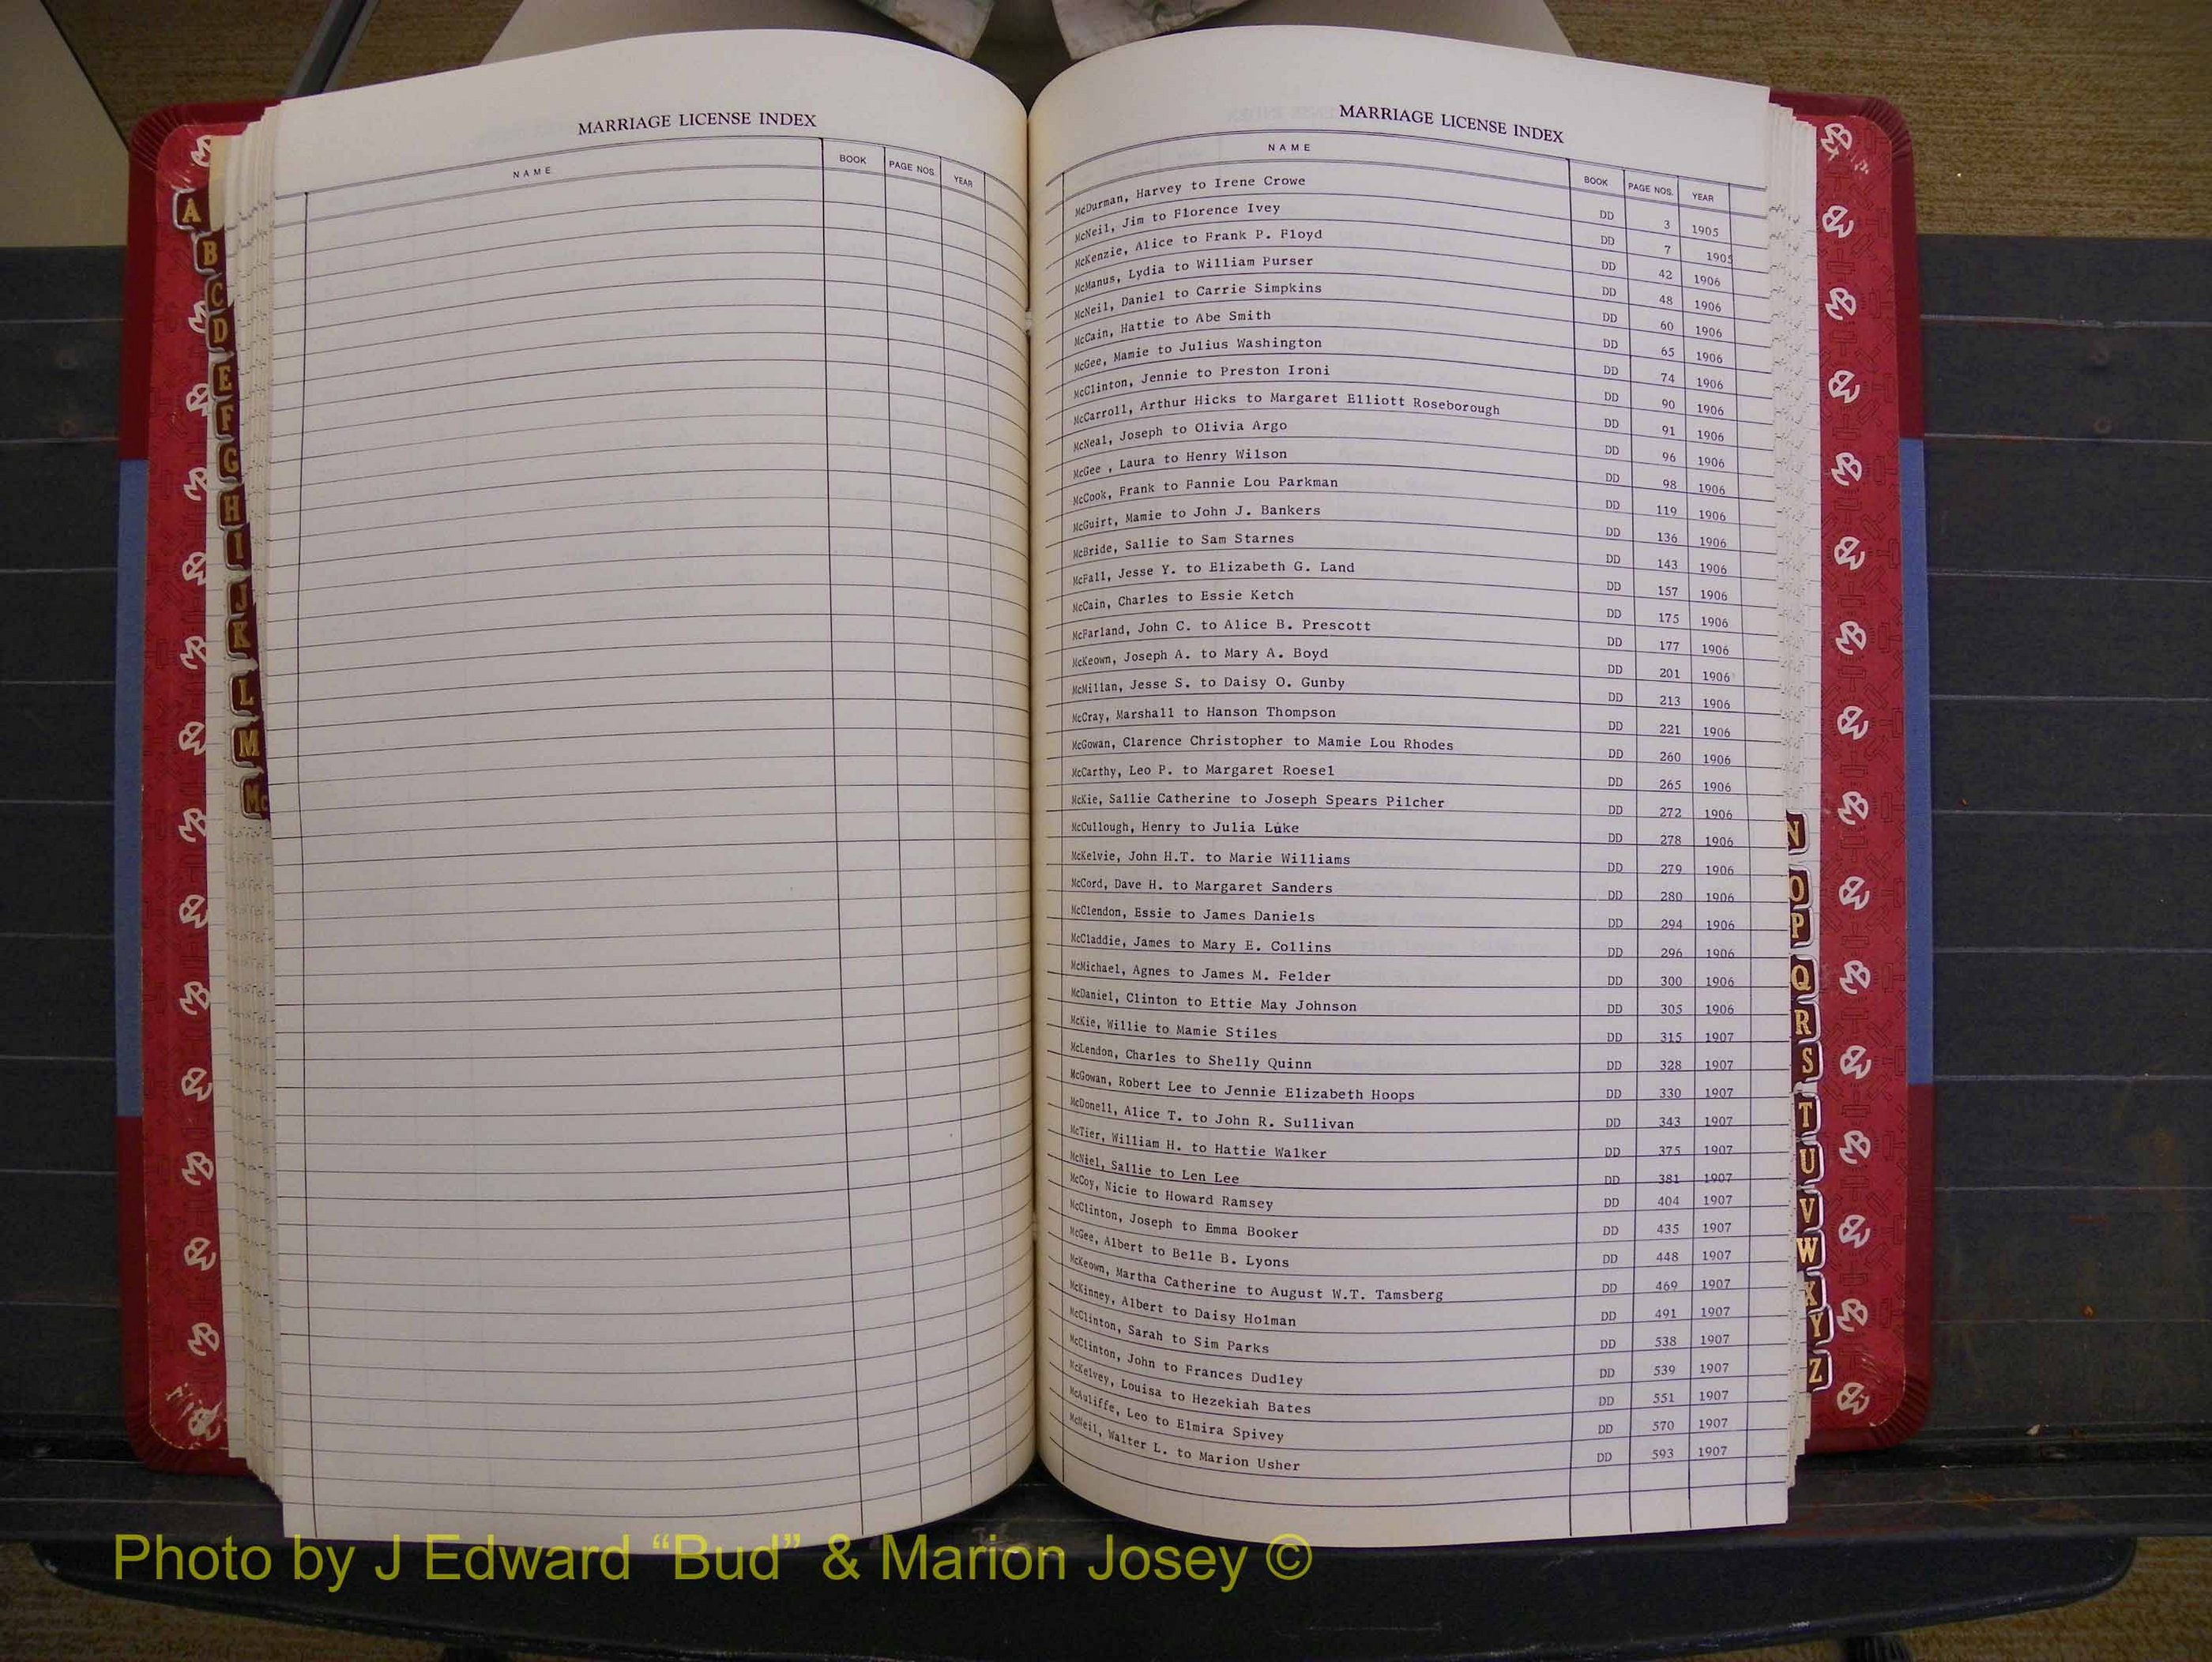 MARRIAGE LICENSE INDEX
NAME BOOK PAGE NOS. YEAR
A
B
C
D
E
F
G
H
I
J
K
L
M
Mc
MARRIAGE LICENSE INDEX
NAME BOOK PAGE NOS. YEAR
McDurman, Harvey to Irene Crowe DD 3 1905
McNeil, Jim to Florence Ivey DD 7 1905
McKenzie, Alice to Frank P. Floyd DD 42 1906
McManus, Lydia to William Purser DD 48 1906
McNeil, Daniel to Carrie Simpkins DD 60 1906
McCain, Hattie to Abe Smith DD 65 1906
McGee, Mamie to Julius Washington DD 74 1906
McClinton, Jennie to Preston Ironi DD 90 1906
McCarroll, Arthur Hicks to Margaret Elliott Roseborough DD 91 1906
McNeal, Joseph to Olivia Argo DD 96 1906
McGee , Laura to Henry Wilson DD 98 1906
McCook, Frank to Fannie Lou Parkman DD 119 1906
McGuirt, Mamie to John J. Bankers DD 136 1906
McBride, Sallie to Sam Starnes DD 143 1906
McFall, Jesse Y. to Elizabeth G. Land DD 157 1906
McCain, Charles to Essie Ketch DD 175 1906
McFarland, John C. to Alice B. Prescott DD 177 1906
McKeown, Joseph A. to Mary A. Boyd DD 201 1906
McMillan, Jesse S. to Daisy O. Gunby DD 213 1906
McCray, Marshall to Hanson Thompson DD 221 1906
McGowan, Clarence Christopher to Mamie Lou Rhodes DD 260 1906
McCarthy, Leo P. to Margaret Roesel DD 265 1906
McKie, Sallie Catherine to Joseph Spears Pilcher DD 272 1906
McCullough, Henry to Julia Luke DD 278 1906
McKelvie, John H.T. to Marie Williams DD 279 1906
McCord, Dave H. to Margaret Sanders DD 280 1906
McClendon, Essie to James Daniels DD 294 1906
McCladdie, James to Mary E. Collins DD 296 1906
McMichael, Agnes to James M. Felder DD 300 1906
McDaniel, Clinton to Ettie May Johnson DD 305 1906
McKie, Willie to Mamie Stiles DD 315 1907
McLendon, Charles to Shelly Quinn DD 328 1907
McGowan, Robert Lee to Jennie Elizabeth Hoops DD 330 1907
McDonell, Alice T. to John R. Sullivan DD 343 1907
McTier, William H. to Hattie Walker DD 375 1907
McNiel, Sallie to Len Lee DD 381 1907
McCoy, Nicie to Howard Ramsey DD 404 1907
McClinton, Joseph to Emma Booker DD 435 1907
McGee, Albert to Belle B. Lyons DD 448 1907
McKeown, Martha Catherine to August W.T. Tamsberg DD 469 1907
McKinney, Albert to Daisy Holman DD 491 1907
McClinton, Sarah to Sim Parks DD 538 1907
McClinton, John to Frances Dudley DD 539 1907
McKelvey, Louisa to Hezekiah Bates DD 551 1907
McAuliffe, Leo to Elmira Spivey DD 570 1907
McNeil, Walter L. to Marion Usher DD 593 1907
N
O
P
Q
R
S
T
U
V
W
X
Y
Z
Photo by J Edward “Bud” & Marion Josey ©